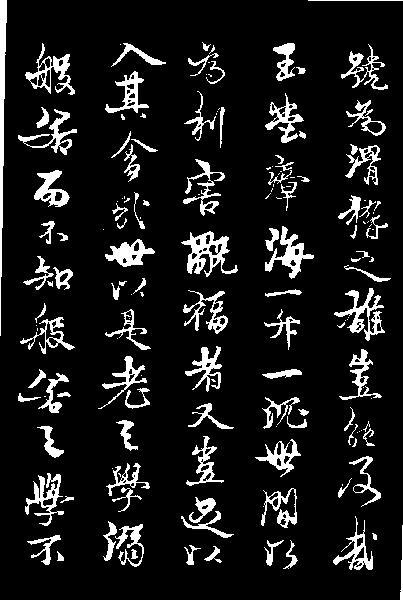 號為渭之豈能及哉
玉堂瘴海一升一沉世間所
為利害福者又豈足以
入其舍世以是老之學溺
般若而不知般若之學不